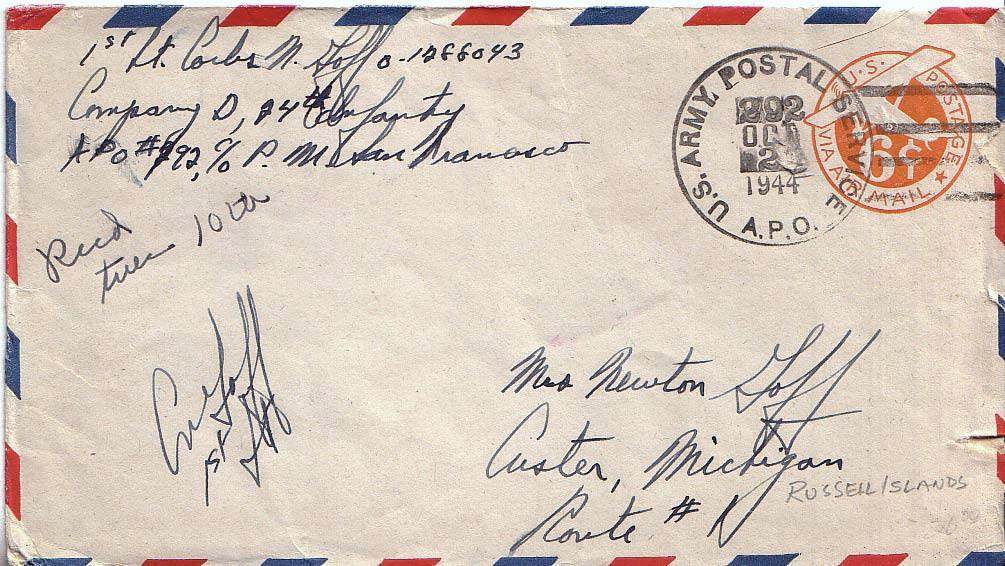 1st Lt. Corbs N. Goff O-1288043
Company D, 24th Infantry
APO #292, c/o P. M. San Francisco
Recd
tues 10th
U.S. ARMY POSTAL SERVICE
292
OCT
2
1944
A.P.O.
U.S. POSTAGE
6¢
VIA AIR MAIL
Goff
1st Lt
Mrs Newton Goff
Custer, Michigan
Route #
RUSSELL ISLANDS